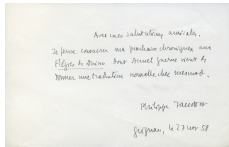 Avec mes salutations amicales.
Je pense consacrer ma prochaine chronique aux
Elégies de Duino dont Armel Guerne vient de
donner une traduction nouvelle chez mermod.
Philippe Jaccottet
Grignan, le 27 nov. 58